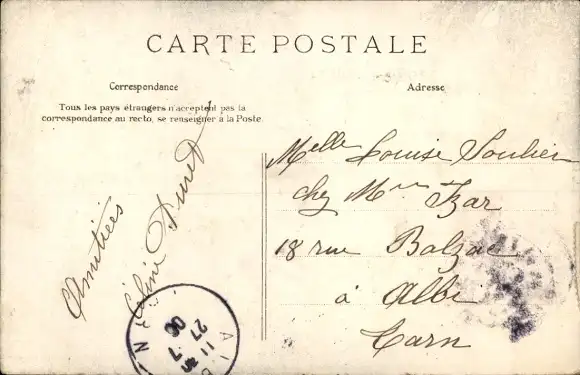 CARTE POSTALE
Correspondance
Tous les pays étrangers n'acceptent pas la
correspondance au recto, se renseigner à la Poste
Amitiées
Céline Duret
Adresse
Melle Louise Soulier
chez Mme Izar
18 rue Balzac
à Albi
Tarn